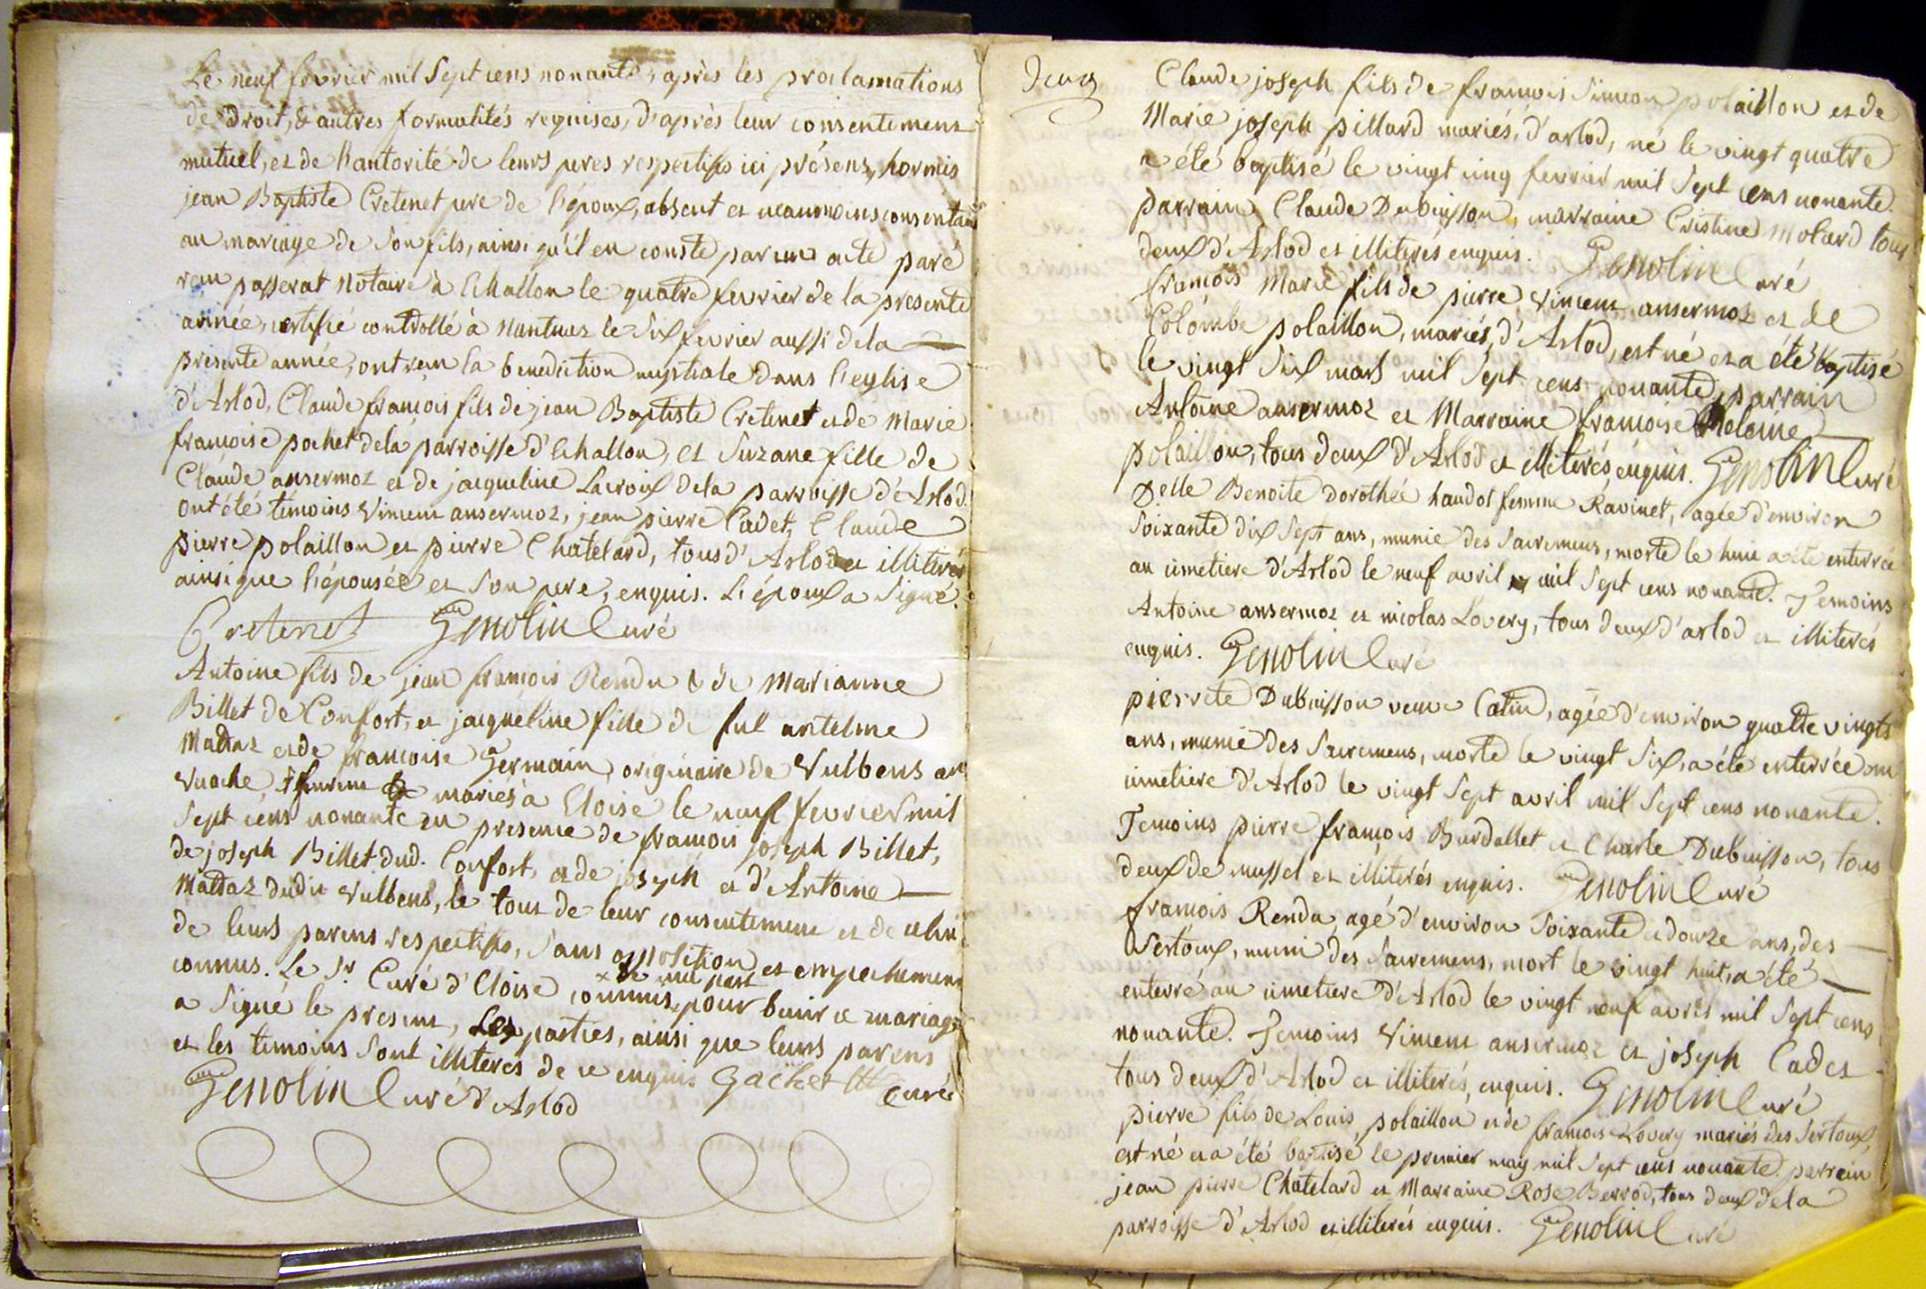 Le neuf fevrier mil Sept cens nonante, après les proclamations
de droit, & autres formalités requises, d'après leur consentement
mutuel, et de l'autorité de leurs peres respectifs ici présens, hormis
jean Baptiste Cretenet pere de l'époux, absent et neanmoins consentant
au mariage de Son fils, ainsi qu'il en conste par un acte paré
reçu passerat Notaire à Echallon le quatre fevrier de la presente
année, certifié controllé à Nantuaz le Six fevrier aussi dela
presente année, ont reçu la benediction nuptiale dans l'eglise
d'Arlod, Claude françois fils de jean Baptiste Cretenet et de Marie
françoise pochet dela parroisse d'Echallon, et Suzane fille de
Claude ansermoz et de jacqueline Lacroix dela parroisse d'Arlod.
ont été témoins Vincent ansermoz, jean pierre Cadet, Claude
pierre polaillon et pierre Chatelard, tous d'Arlod et illiterés
ainsi que l'épousée et Son pere, enquis. L'époux a Signé.
Cretenet Genolin Curé
Antoine fils de jean françois Rendu & de Marianne
Billet de Confort, et jacqueline fille de fut antelme
Mattaz et de françoise Germain, originaire de Vulbens au
Vuache furent mariés à Eloise le neuf fevrier mil
Sept cens nonante en presence de françois joseph Billet,
de joseph Billet dud. Confort, et de joseph et d'Antoine
Mattaz dudit Vulbens, le tout de leur consentement et de celui
de leurs parens respectifs, Sans opposition et empechement
connus. Le Sr. Curé d'Eloise commis de me part pour benir ce mariage
a Signé le present, Les parties, ainsi que leurs parens
et les temoins Sont illiteres de ce enquis Gachet Curé
Genolin Curé d'Arlod
Deux
Claude joseph fils de françois Simeon polaillon et de
Marie joseph pillard mariés, d'arlod, né le vingt quatre
a été baptisé le vingt cinq fevrier mil Sept cens nonante.
parrain Claude Dubuisson, marraine Cristine Molard tous
deux d'Arlod et illiterés enquis. Genolin Curé
françois Marie fils de pierre Vincent ansermoz et de
Colombe polaillon, mariés, d'Arlod, est né et a été baptisé
le vingt Six mars mil Sept cens nonante, parrain
Antoine ansermoz et Marraine françoise
polaillon, tous deux d'Arlod et illiterés enquis. Genolin Curé
Delle Benoite Dorothée haudot femme Ravinet, agée d'environ
Soixante dix Sept ans, munie des Sacremens, morte le huit a été enterrée
au cimetiere d'Arlod le neuf avril mil Sept cens nonante. Temoins
Antoine ansermoz et nicolas Lovery, tous deux d'arlod et illiterés
enquis. Genolin Curé
pierrete Dubuisson veuve Catin, agée d'environ quatre vingts
ans, munie des Sacremens, morte le vingt Six, a été enterrée au
cimetiere d'Arlod le vingt Sept avril mil Sept cens nonante.
Temoins pierre françois Burdallet et Charle Dubuisson, tous
deux de mussel et illiterés enquis. Genolin Curé
françois Rendu, agé d'environ Soixante et douze ans, des
Sertoux, muni des Sacremens, mort le vingt huit, a été
enterré au cimetiere d'Arlod le vingt neuf avril mil Sept cens
nonante. Temoins Vincent ansermoz et joseph Cadet
tous deux d'Arlod et illiterés, enquis. Genolin Curé
pierre fils de Louis polaillon et de françoise Lovery mariés des Sertoux,
est né et a été baptisé le premier may mil Sept cens nonante. parrain
jean pierre Chatelard et Marraine Rose Berrod, tous deux dela
parroisse d'Arlod et illiterés enquis. Genolin Curé